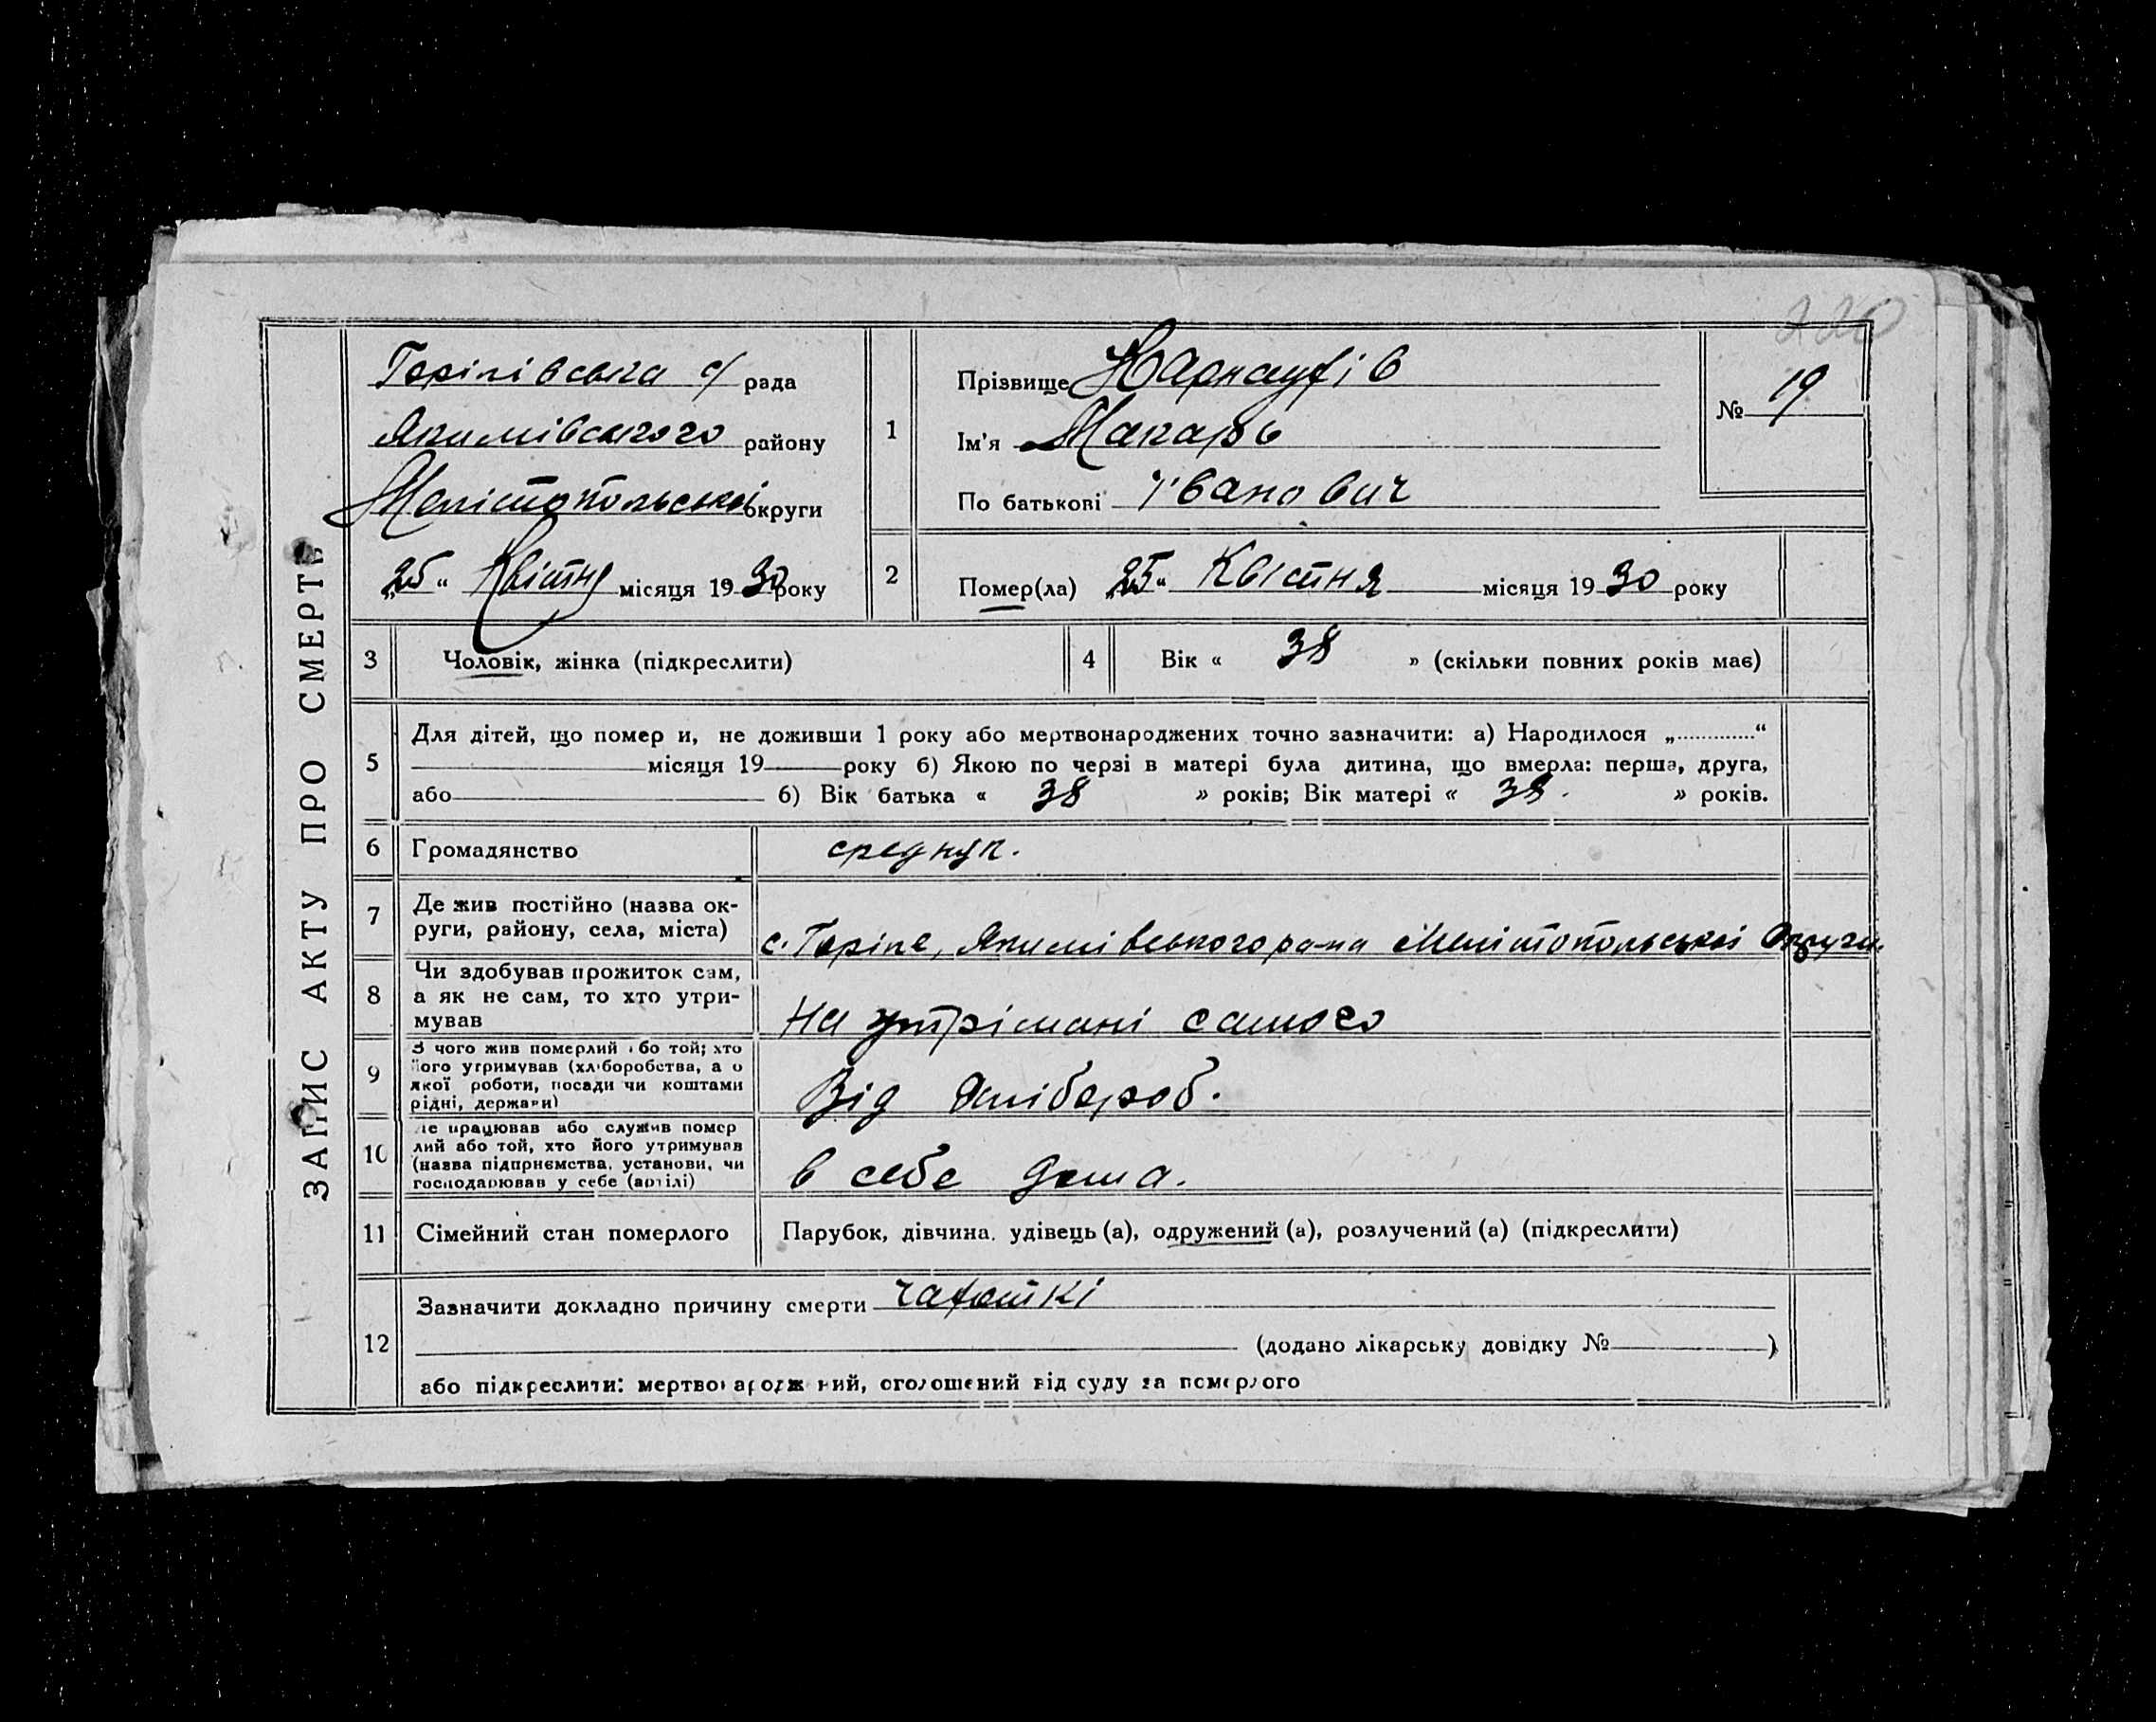 220
ЗАПИС АКТУ ПРО СМЕРТЬ
Горілівська с/ рада
Якимівського району
Мелітопольської округи
„25“ Квітня місяця 1930 року
1
Прізвище
Ім'я Макарь
По батькові Іванович
№ 19
2
Помер(ла) „25“ Квітня місяця 1930 року
3
Чоловік, жінка (підкреслити)
4
Вік « 38 » (скільки повних років має)
5
Для дітей, що помер и, не доживши 1 року або мертвонароджених точно зазначити: а) Народилося „.............“
місяця 19 року б) Якою по черзі в матері була дитина, що вмерла: перша, друга,
або б) Вік батька « 38 » років; Вік матері « 38. » років.
6
Громадянство
средняк.
7
Де жив постійно (назва ок-
руги, району, села, міста)
с. Якимівського ра-на Мелітопольської Округи.
8
Чи здобував прожиток сам,
а як не сам, то хто утри-
мував
на утрімані самого
9
З чого жив померлий або той; хто
його утримував (хліборобства, а о
якої роботи, посади чи коштами
рідні, держави)
Від хлібороб.
10
Де працював або служив помер
лий або той, хто його утримував
(назва підприємства, установи, чи
господарював у себе (артілі)
в себе дома.
11
Сімейний стан померлого
Парубок, дівчина, удівець (а), одружений (а), розлучений (а) (підкреслити)
12
Зазначити докладно причину смерти чахоткі
(додано лікарську довідку № )
або підкреслити: мертвонароджений, оголошений від суду за померлого